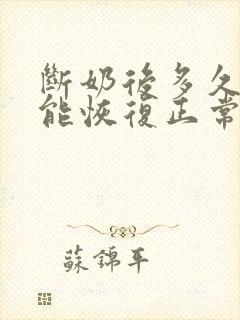 斷奶後多久
能恢復正常
蘇錦平